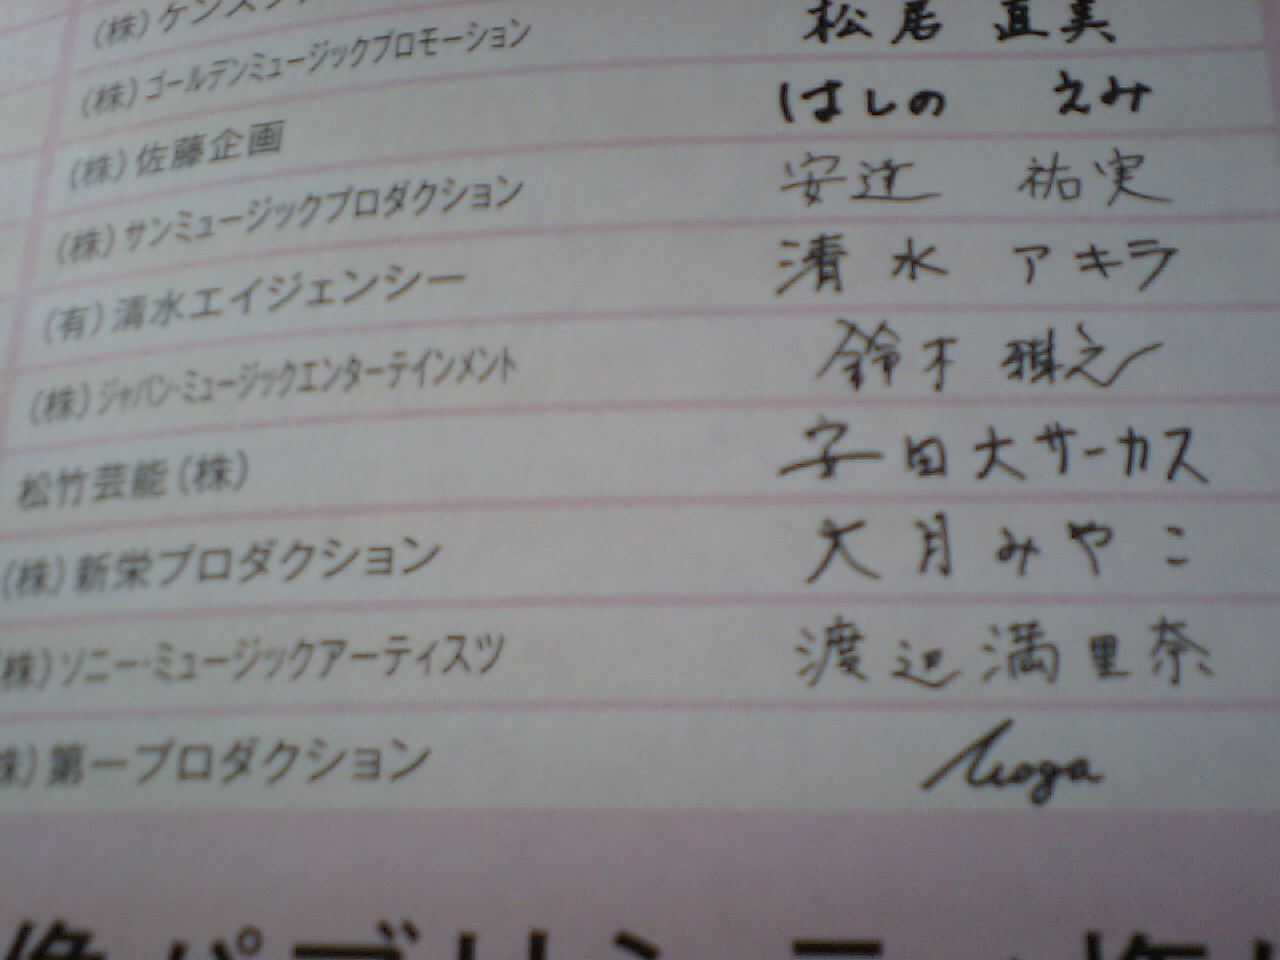 (株)ゴールデンミュージックプロモーション 松居 直美
(株)佐藤企画 はしの えみ
(株)サンミュージックプロダクション 安達 祐実
(有)清水エイジェンシー 清水 アキラ
(株)ジャパン・ミュージックエンターテインメント 鈴木 雅之
松竹芸能(株) 安田大サーカス
(株)新栄プロダクション 大月みやこ
(株)ソニー・ミュージックアーティスツ 渡辺満里奈
(株)第一プロダクション